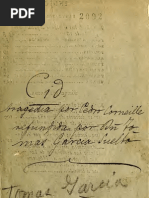 Cid
tragedia por Pedro Corneille
refundida por Dn To
mas García Suelto
Tomas García